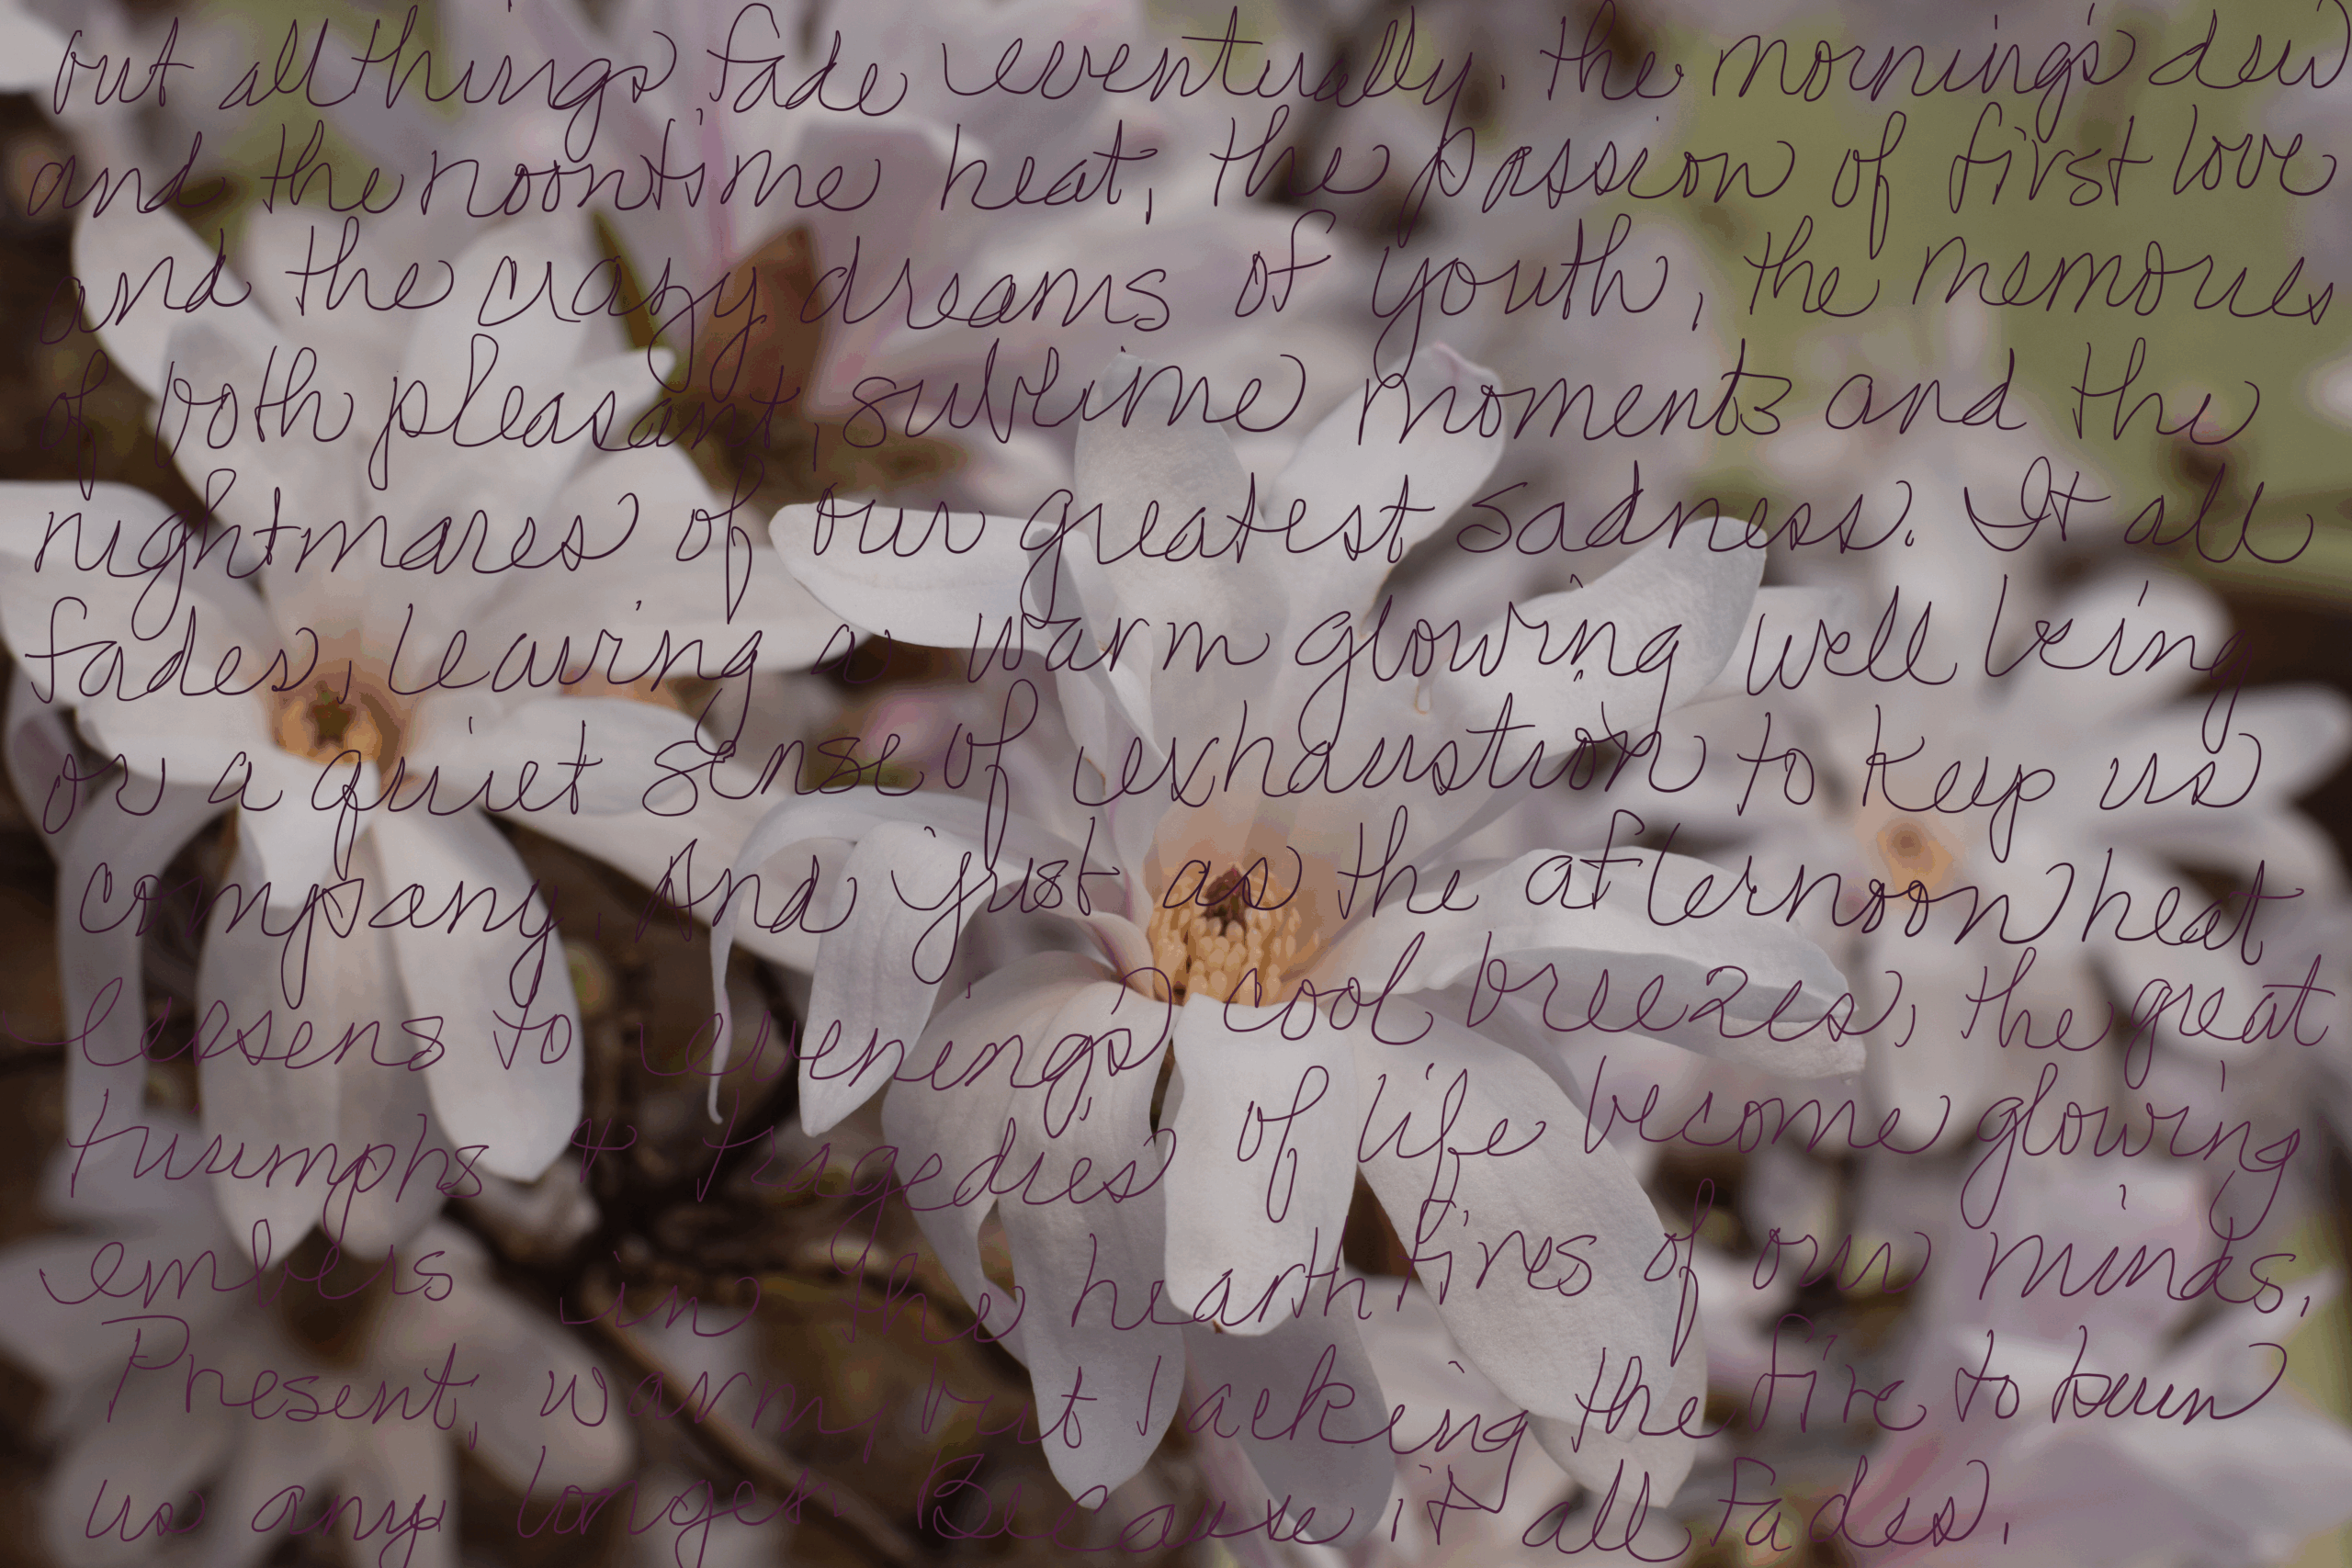 but all things fade eventually. the morning's dew
and the noontime heat, the passion of first love
and the crazy dreams of youth, the memories
of both pleasant, sublime moments and the
nightmares of our greatest sadness. It all
fades, leaving a warm glowing well being
or a quiet sense of exhaustion to keep us
company. And just as the afternoon heat
lessens to evening's cool breezes, the great
triumphs & tragedies of life become glowing
embers in the hearthfires of our minds.
Present, warm, but lacking the fire to burn
us any longer. Because it all fades.